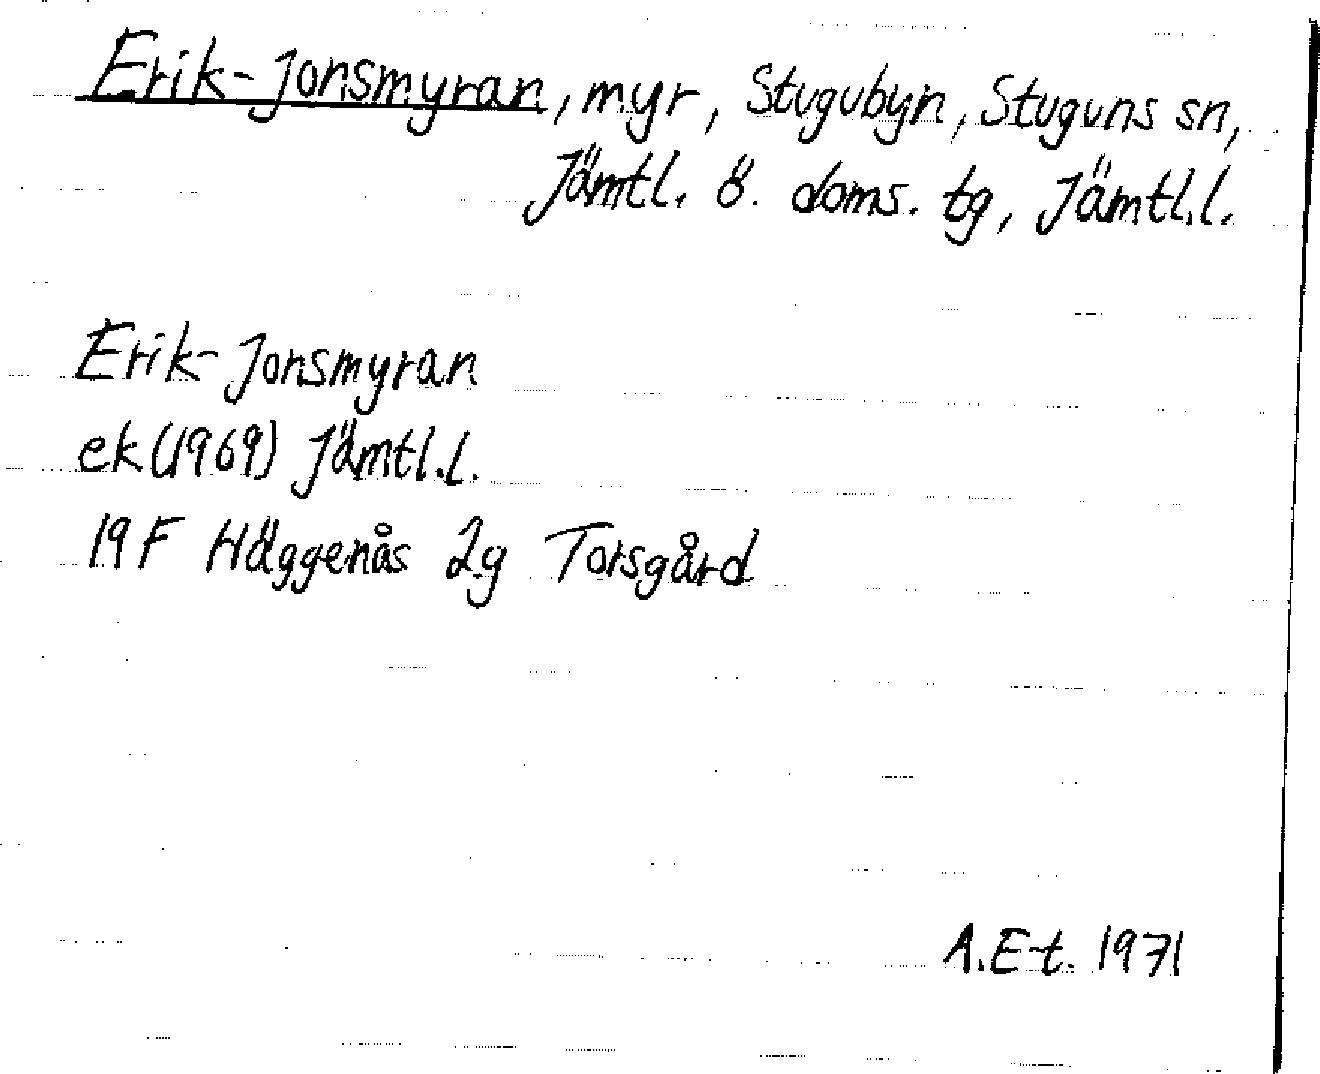 Erik-Jonsmyran, myr, Stugubyn, Stuguns sn,
Jämtl. ö. doms. tg, Jämtl.l.
Erik-Jonsmyran
ek (1969) Jämtl.l.
19F Häggenås 2g Torsgård
A.E-t. 1971